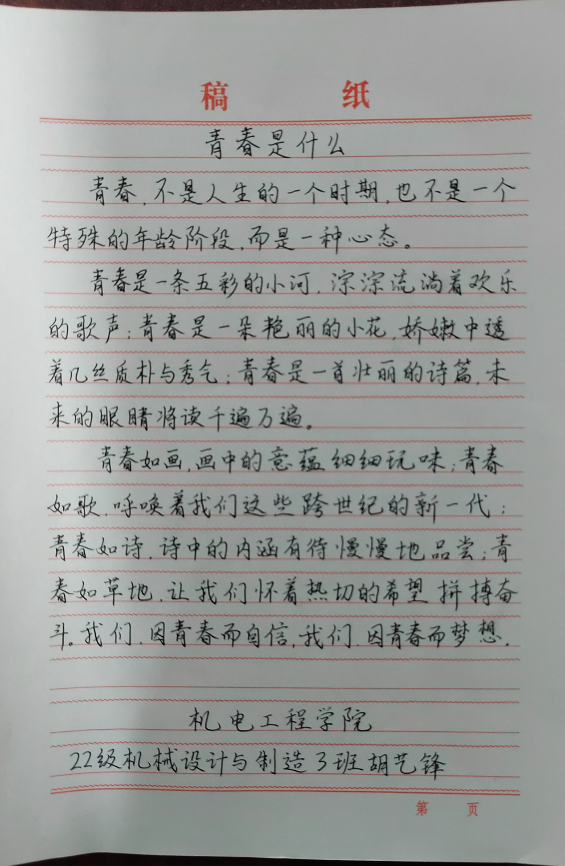 稿 纸
青春是什么
青春,不是人生的一个时期,也不是一个
特殊的年龄阶段,而是一种心态。
青春是一条五彩的小河,淙淙流淌着欢乐
的歌声;青春是一朵艳丽的小花,娇嫩中透
着几丝质朴与秀气;青春是一首壮丽的诗篇,未
来的眼睛将读千遍万遍。
青春如画,画中的意蕴细细玩味;青春
如歌,呼唤着我们这些跨世纪的新一代;
青春如诗,诗中的内涵有待慢慢地品尝;青
春如草地,让我们怀着热切的希望拼搏奋
斗。我们,因青春而自信,我们,因青春而梦想.
机电工程学院
22级机械设计与制造3班胡艺锋
第 页